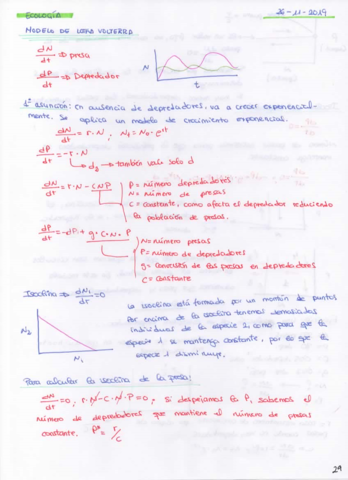 ECOLOGÍA
26-11-2019
MODELO DE LOTKA VOLTERRA
dN/dt ⇒ presa
dP/dt ⇒ Depredador
N
t
1ª asunción: En ausencia de depredadores, va a crecer exponencial-
mente. Se aplica un modelo de crecimiento exponencial.
dN/dt = r·N ; Nt = N0·e^rt
dP/dt = -r·N
d2 → también vale solo d
dN/dt = r·N - CNP
P = número depredadores
N = número de presas
C = constante, como afecta el depredador reduciendo
la población de presas.
dP/dt = -dP + g·C·N·P
N = número presas
P = número de depredadores
g = conversión de las presas en depredadores
C = constante
Isoclina ⇒ dN1/dt = 0
N2
N1
La isoclina está formada por un montón de puntos
Por encima de la isoclina tenemos demasiados
individuos de la especie 2, como para que la
especie 1 se mantenga constante, por eso que la
especie 1 disminuye.
Para calcular la isoclina de la presa:
dN/dt = 0; r·N - C·N·P = 0; Si despejamos la P, sabemos el
número de depredadores que mantiene el número de presas
constante. P* = r/C
29